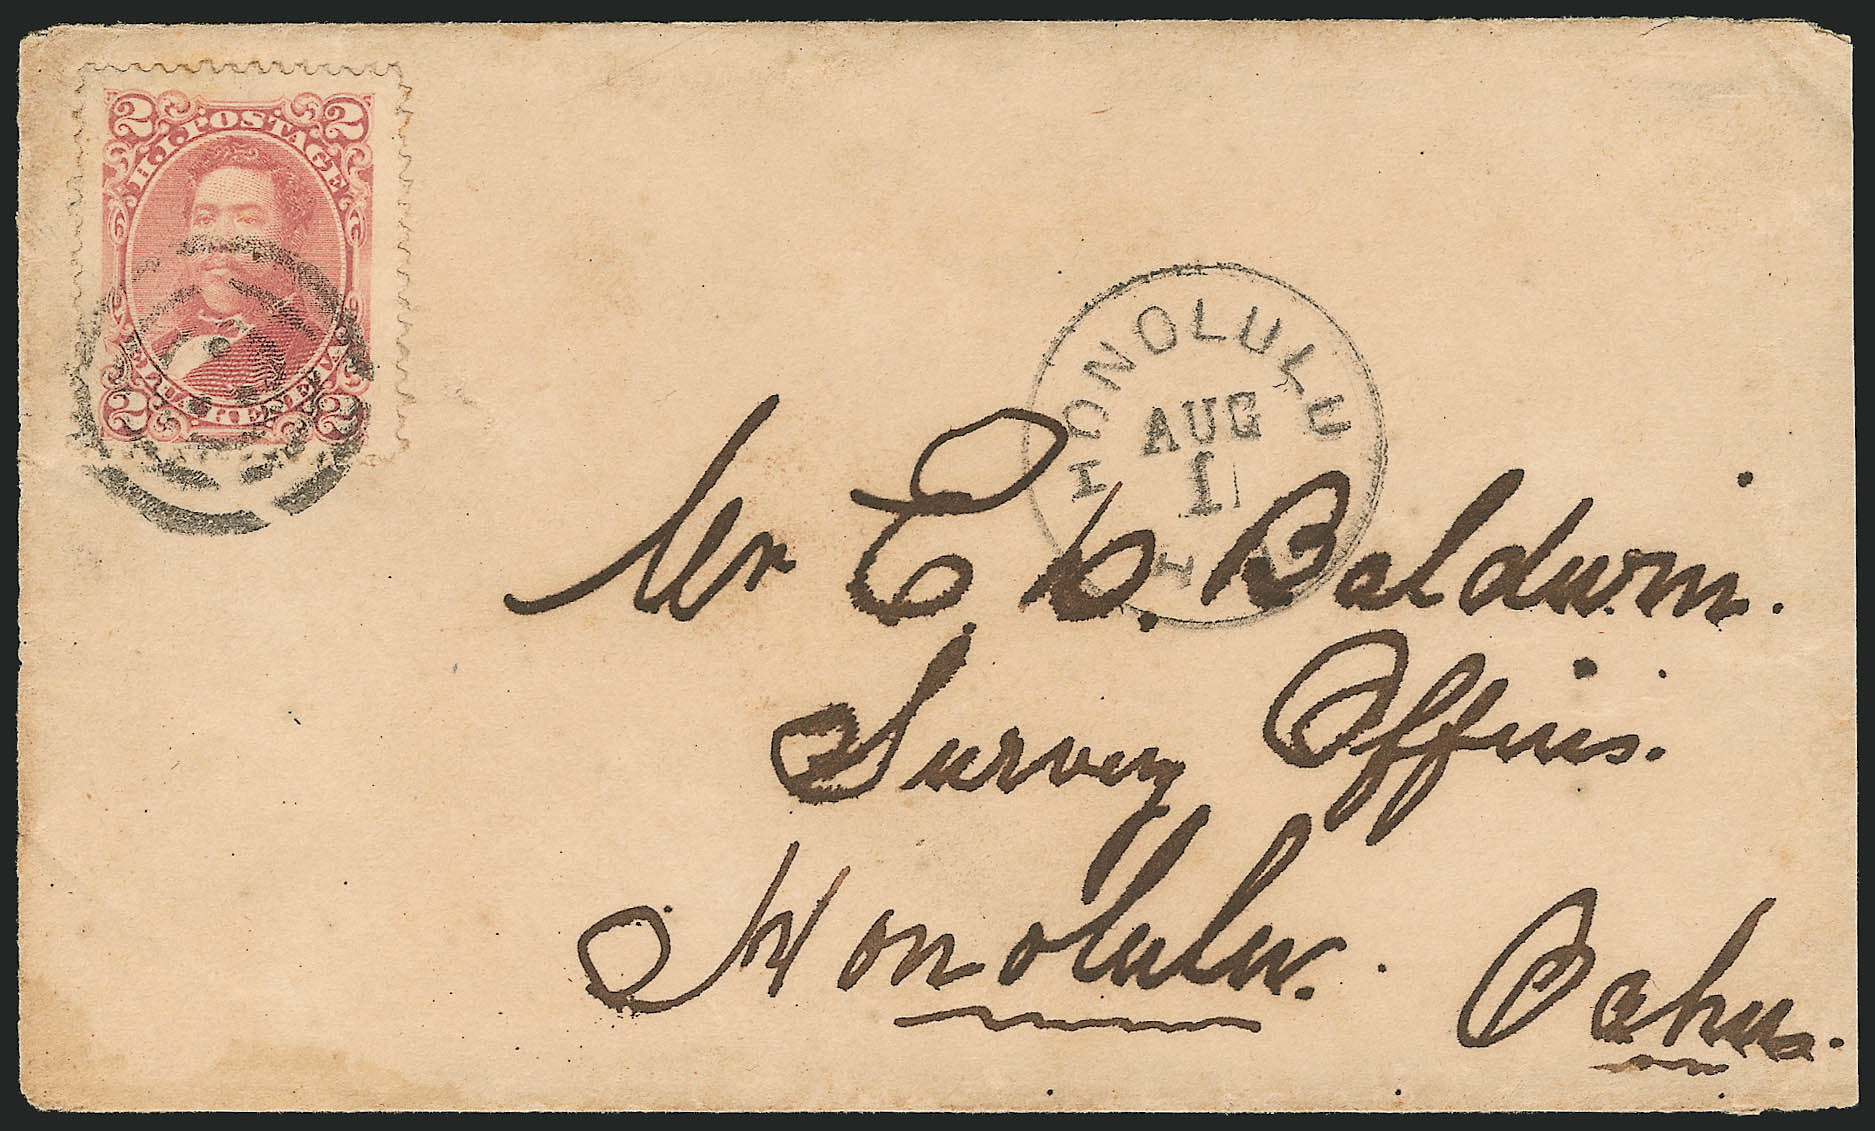 2 2
H.I. POSTAGE
ELUA KENETA
2 2
HONOLULU
AUG
1
H
Mr E. D. Baldwin.
Survey Office.
Honolulu.
Oahu.